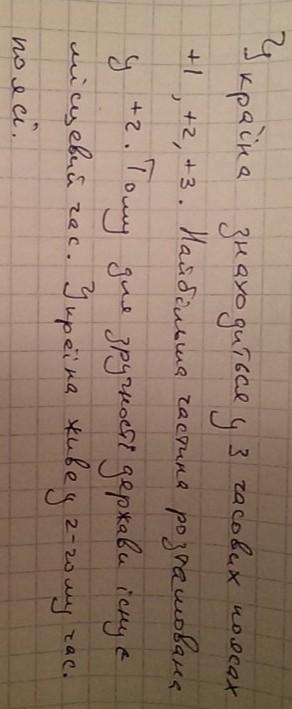 Україна знаходиться у 3 часових поясах
+1, +2, +3. Найбільша частина розташована
у +2. Тому для зручності держави існує
місцевий час. Україна живе у 2-гому час.
поясі.